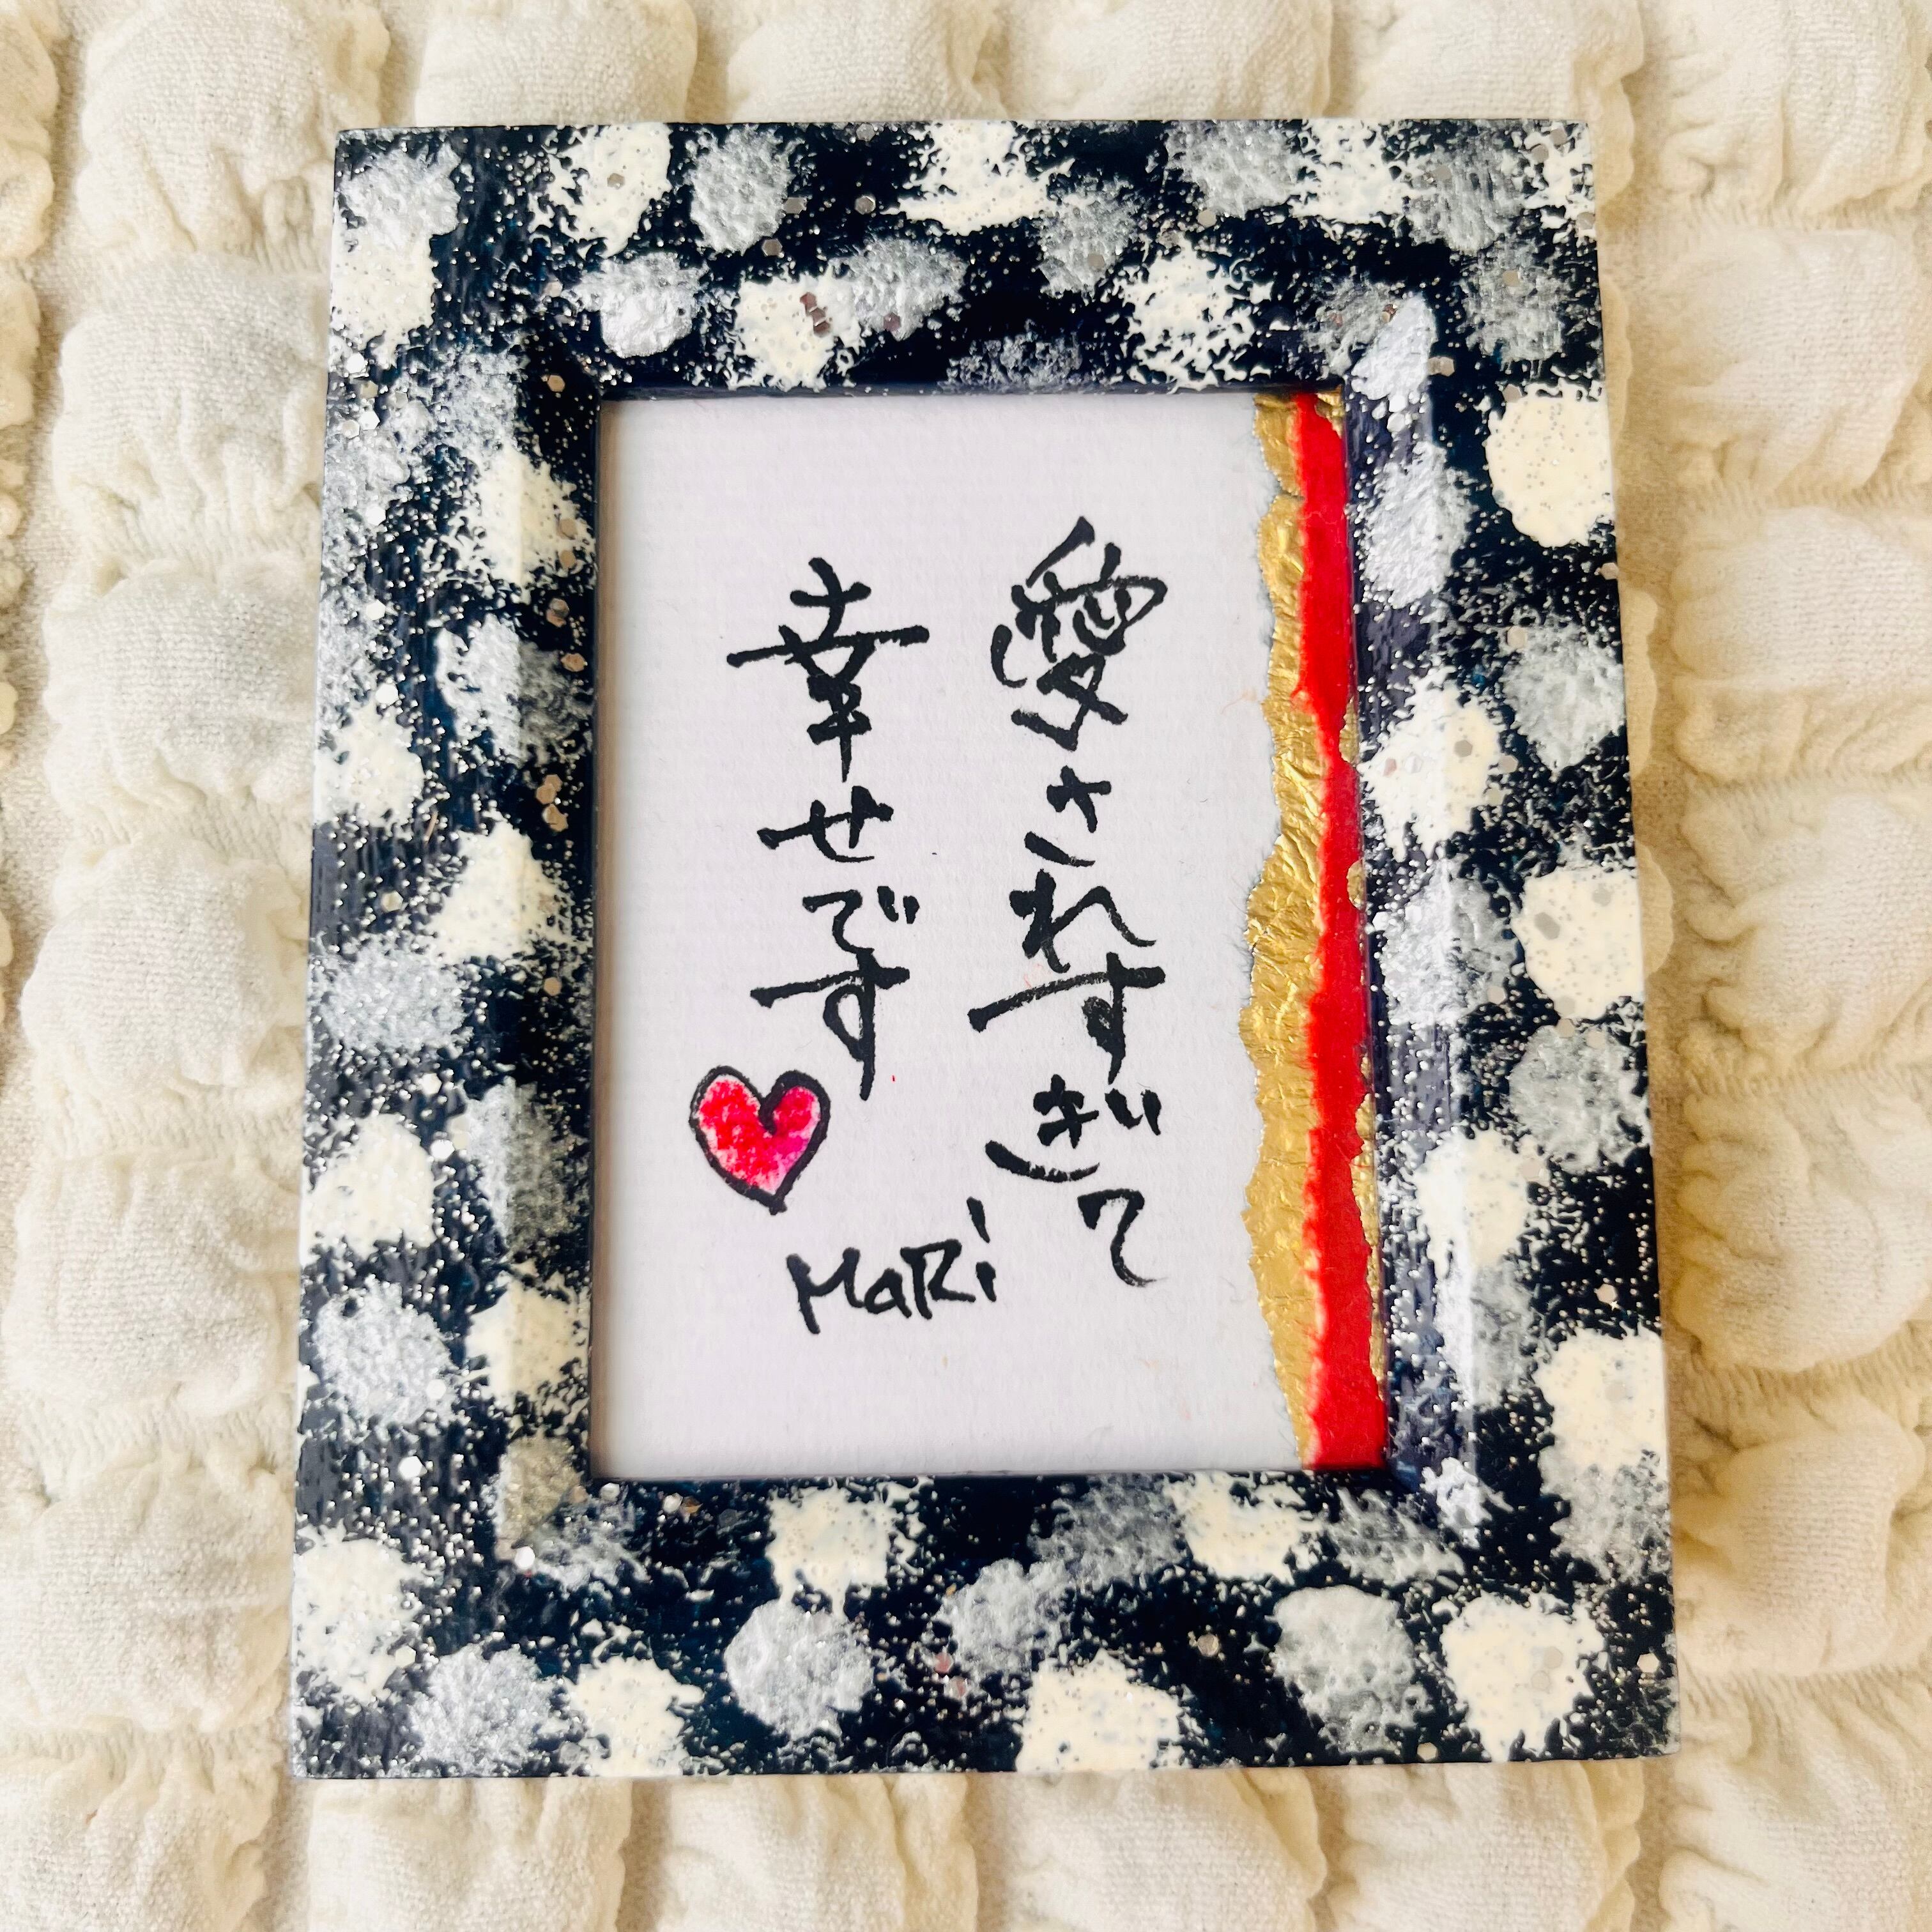 愛されすぎて
幸せです
MaRi